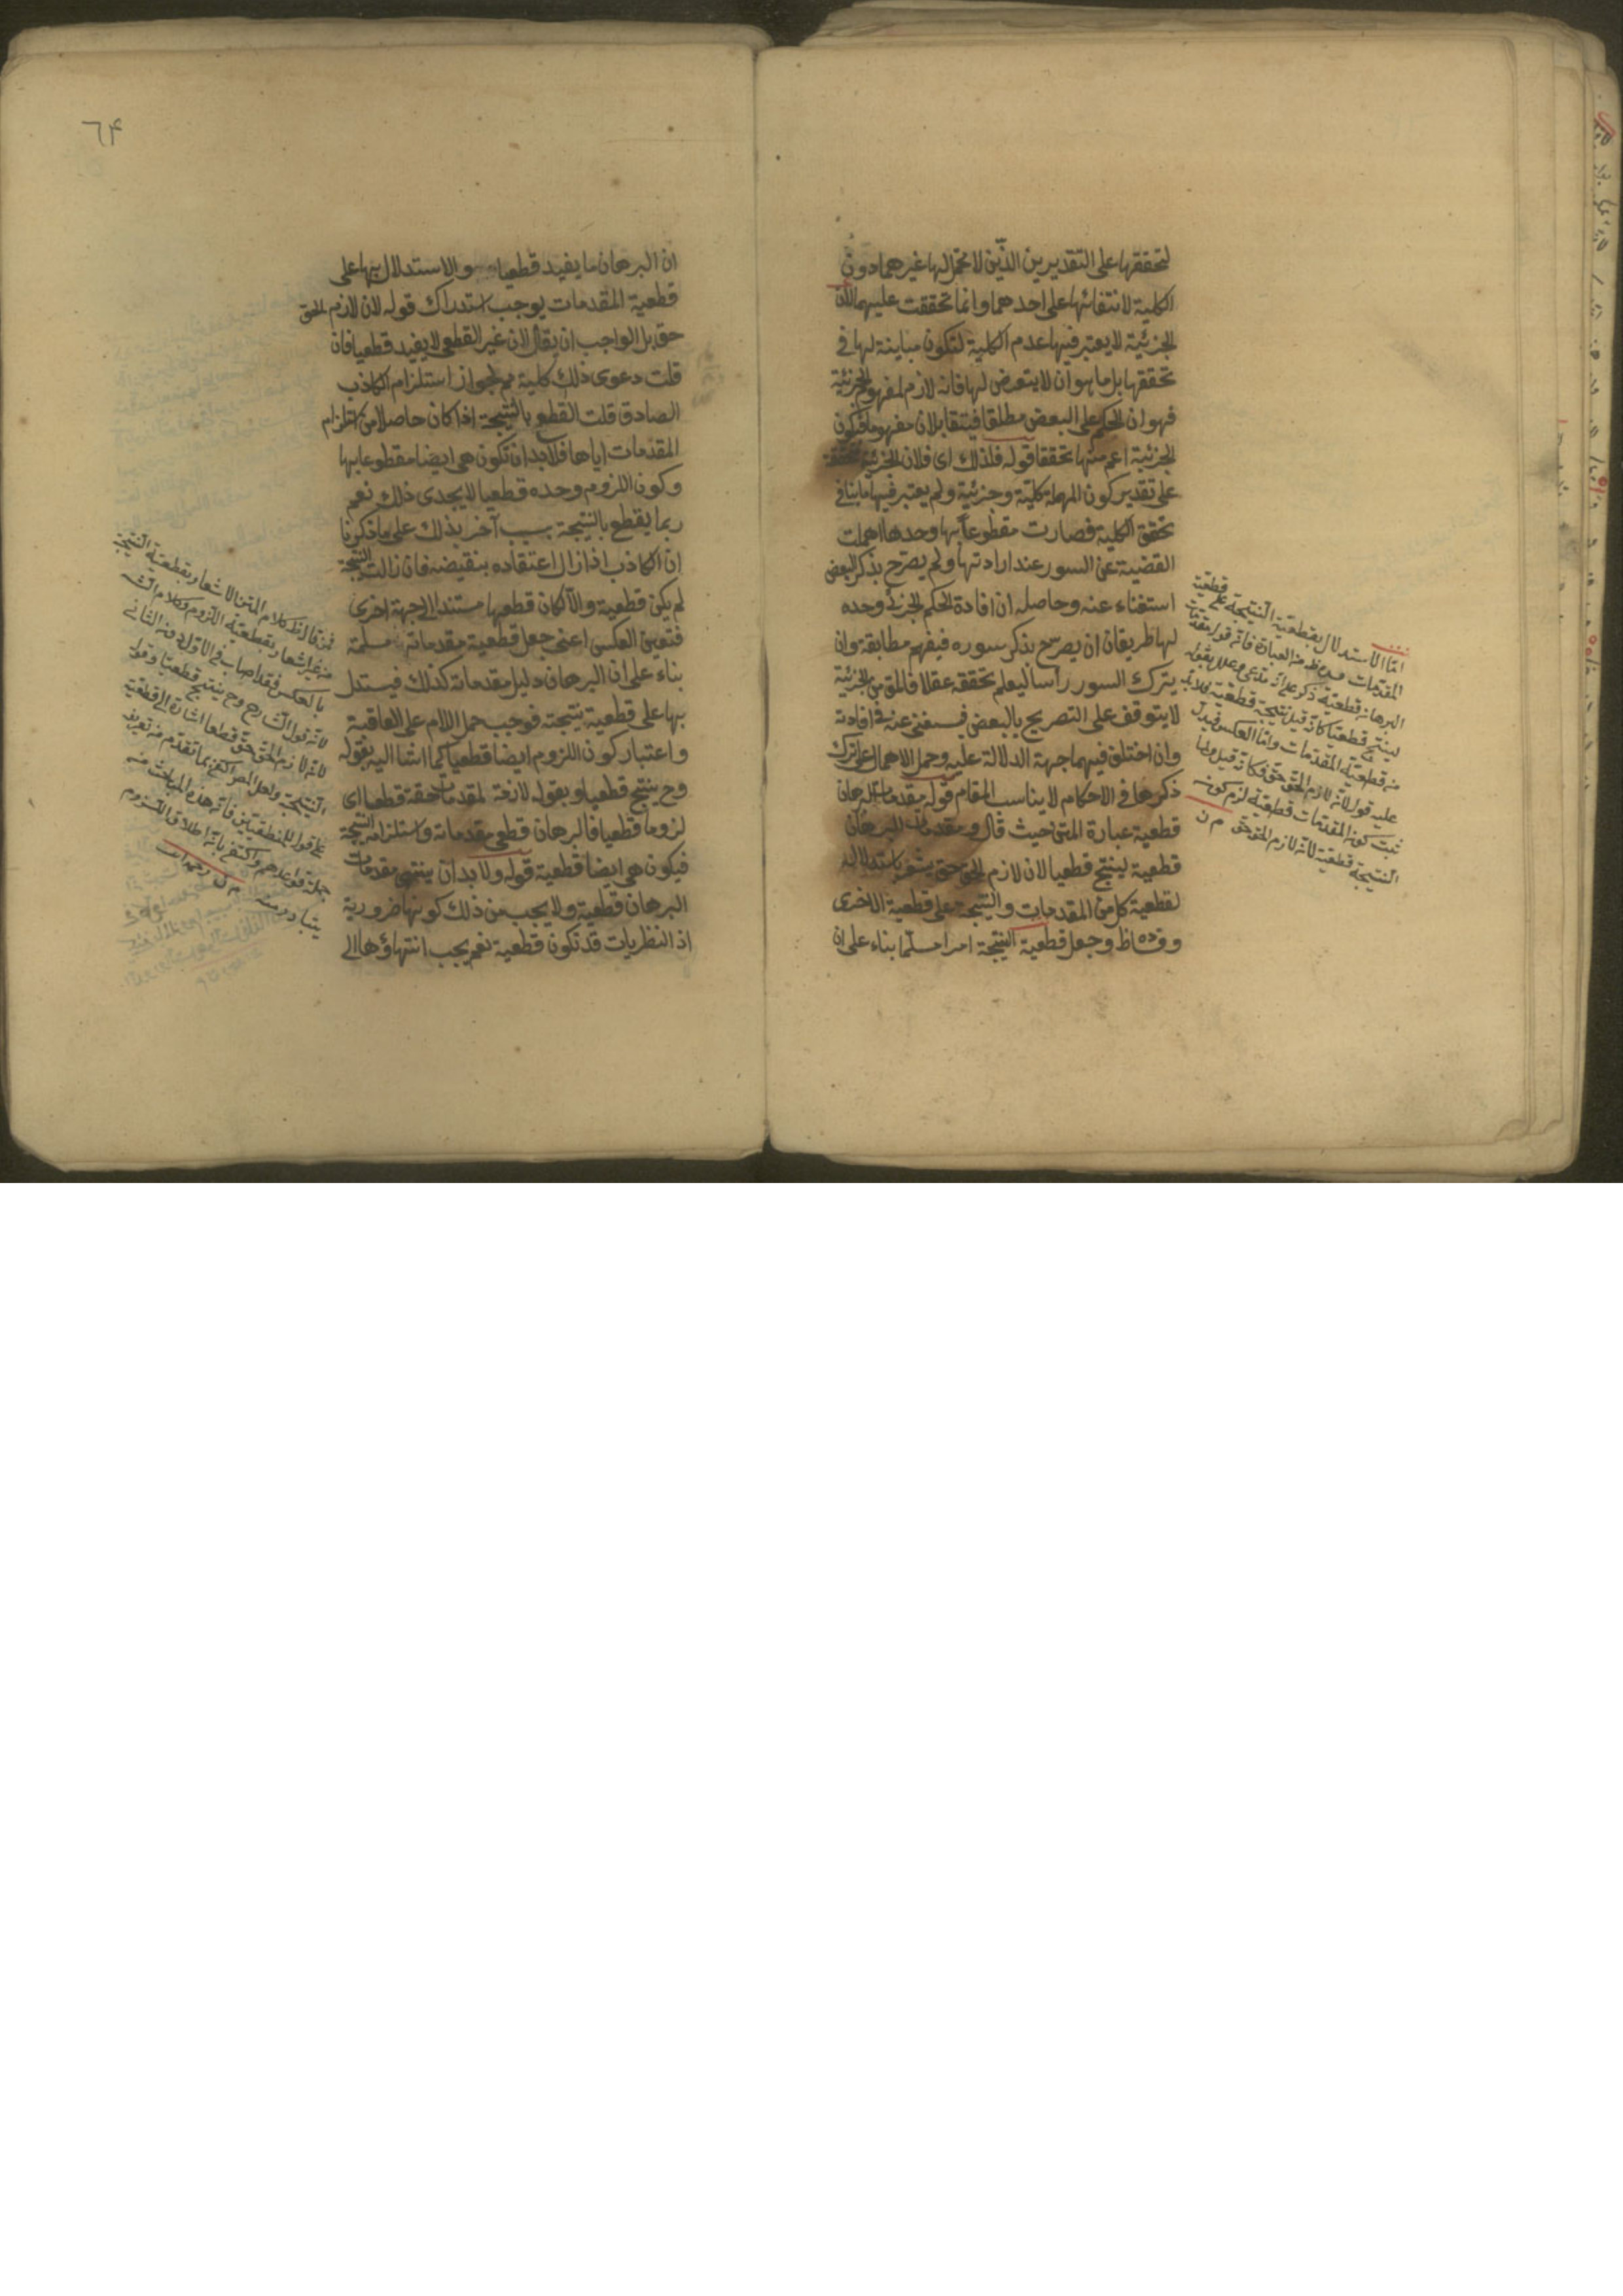 لتحققها على التقديرين الذين لا محمل لها غيرهما دون
الكلية لانتفائها على احدهما وانما تحققت عليهما لان
الجزئية لا يعتبر فيها عدم الكلية لتكون مباينة لها في
تحققها بل ما هو ان لا يتعرض لها فانه لازم لمفهوم الجزئية
فهو ان الحكم على البعض مطلقا فيتقابلان مفهوما فتكون
الجزئية اعم منها تحققا قوله فلذلك اى فلان الجزئية متحققة
على تقدير كون المهملة كلية وجزئية ولم يعتبر فيها ما ينافي
تحقق الكلية فصارت مقطوعا بها وحدها اهملت
القضية عن السور عند ارادتها ولم يصرح بذكر البعض
استغناء عنه وحاصله ان افادة الحكم الجزئي وحده
لها طريقان ان يصرح بذكر سوره فيفهم مطابقة وان
يترك السور رأسا ليعلم تحققه عقلا فالمتيقن الجزئية
لا يتوقف على التصريح بالبعض فيستغنى عنه في افادته
وان اختلف فيهما جهة الدلالة عليه وحمل الاهمال على ترك
ذكرها في الاحكام لا يناسب المقام قوله مقدمات البرهان
قطعية عبارة المتن حيث قال ومقدمات البرهان
قطعية لينتج قطعيا لان لازم الحق حق يشعر باستدلاله
لقطعية كل من المقدمات والنتيجة على قطعية الاخرى
وفساده ظ وجعل قطعية النتيجة امرا مسلما بناء على ان
اما الاستدلال بقطعية النتيجة على قطعية
المقدمات فهو ظ من العبارة فانه قوله مقدمات
البرهان قطعية ذكر على انه مدعى وعلله بقوله
لينتج قطعيا كانه قيل نتيجة قطعية فلا بد
من قطعية المقدمات واما العكس فيدل
عليه قوله لانه لازم الحق حق فكانه قيل ولما
ثبت كون المقدمات قطعية لزم كون
النتيجة قطعية لانه لازم الحق حق م ن
٦٤
ان البرهان ما يفيد قطعيا والاستدلال بها على
قطعية المقدمات يوجب استدراك قوله لان لازم الحق
حق بل الواجب ان يقال لان غير القطعى لا يفيد قطعيا فان
قلت دعوى ذلك كلية مم لجواز استلزام الكاذب
الصادق قلت القطع بالنتيجة اذا كان حاصلا من استلزام
المقدمات اياها فلا بد ان تكون هي ايضا مقطوعا بها
وكون اللزوم وحده قطعيا لا يجدى ذلك نعم
ربما يقطع بالنتيجة بسبب آخر بذلك على ما ذكرنا
ان الكاذب اذا زال اعتقاده بنقيضه فان زالت النتيجة
لم يكن قطعية والا لكان قطعها مستندا الى جهة اخرى
فتعين العكس اعنى جعل قطعية مقدماته مسلمة
بناء على ان البرهان دليل مقدماته كذلك فيستدل
بها على قطعية نتيجته فوجب حمل اللام على العاقبة
واعتبار كون اللزوم ايضا قطعيا كما اشار اليه بقوله
وح ينتج قطعيا وبقوله لازمة لمقدمات حقة قطعا اى
لزوما قطعيا فالبرهان قطعى مقدماته واستلزامه النتيجة
فيكون هي ايضا قطعية قوله ولا بد ان ينتهى مقدمات
البرهان قطعية ولا يجب من ذلك كونها ضرورية
اذ النظريات قد تكون قطعية نعم يجب انتهاؤها الى
فمن قال ظ كلام المتن الاشعار بقطعية النتيجة
من غير اشعار بقطعية اللزوم وكلام الش
بالعكس فقد اصاب في الاول دون الثاني
لانه قول الشارح وح ينتج قطعيا وقوله
لانه لازم الحق حق قطعا اشارة الى قطعية
النتيجة ولعل المص اكتفى بما تقدم من تعريف
جملة قواعدهم واكتفى بانه اطلاق اللزوم
يتبادر منه م ن